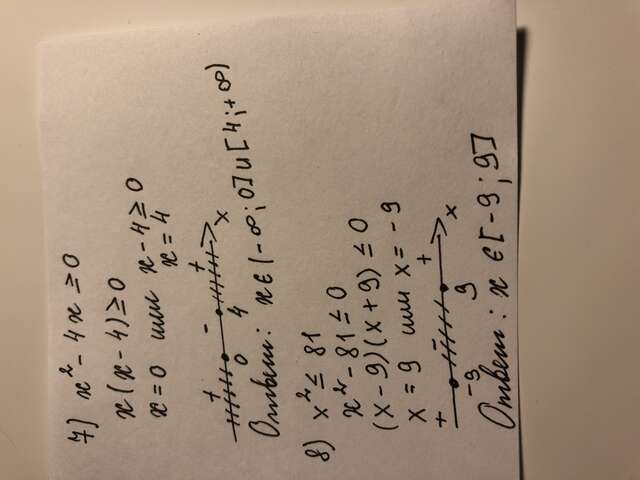 7) x² - 4x ≥ 0
x(x - 4) ≥ 0
x = 0 или x - 4 ≥ 0
x = 4
+ - +
0 4 x
Ответ: x ∈ (-∞; 0] U [4; +∞)
8) x² ≤ 81
x² - 81 ≤ 0
(x - 9)(x + 9) ≤ 0
x = 9 или x = -9
+ - +
-9 9 x
Ответ: x ∈ [-9; 9]